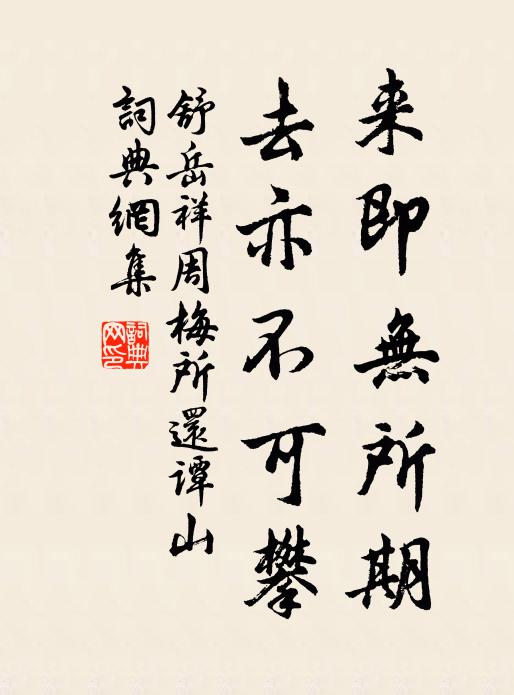 来即無所期
去亦不可攀
舒岳祥周梅所還谭山
詞典網集
詞典网印